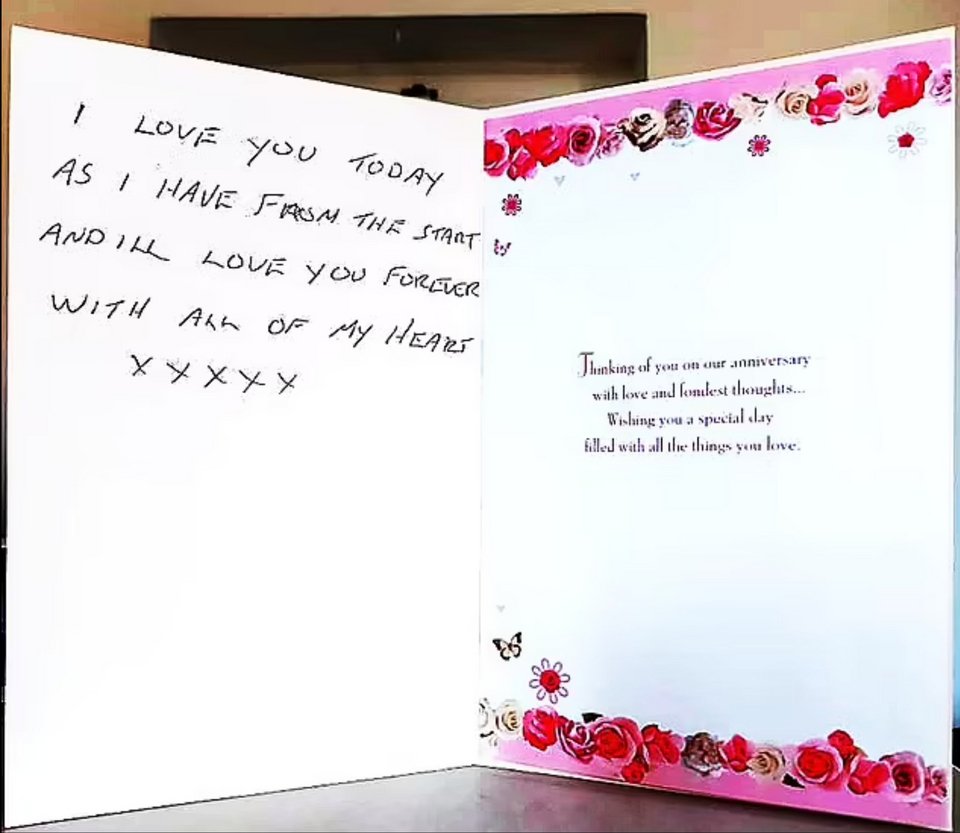 I LOVE YOU TODAY
AS I HAVE FROM THE START
AND ILL LOVE YOU FOREVER
WITH ALL OF MY HEART
X X X X X
Thinking of you on our anniversary
with love and fondest thoughts...
Wishing you a special day
filled with all the things you love.